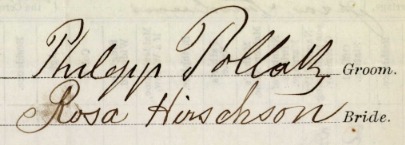 Philipp Pollak Groom.
Rosa Hirschson Bride.